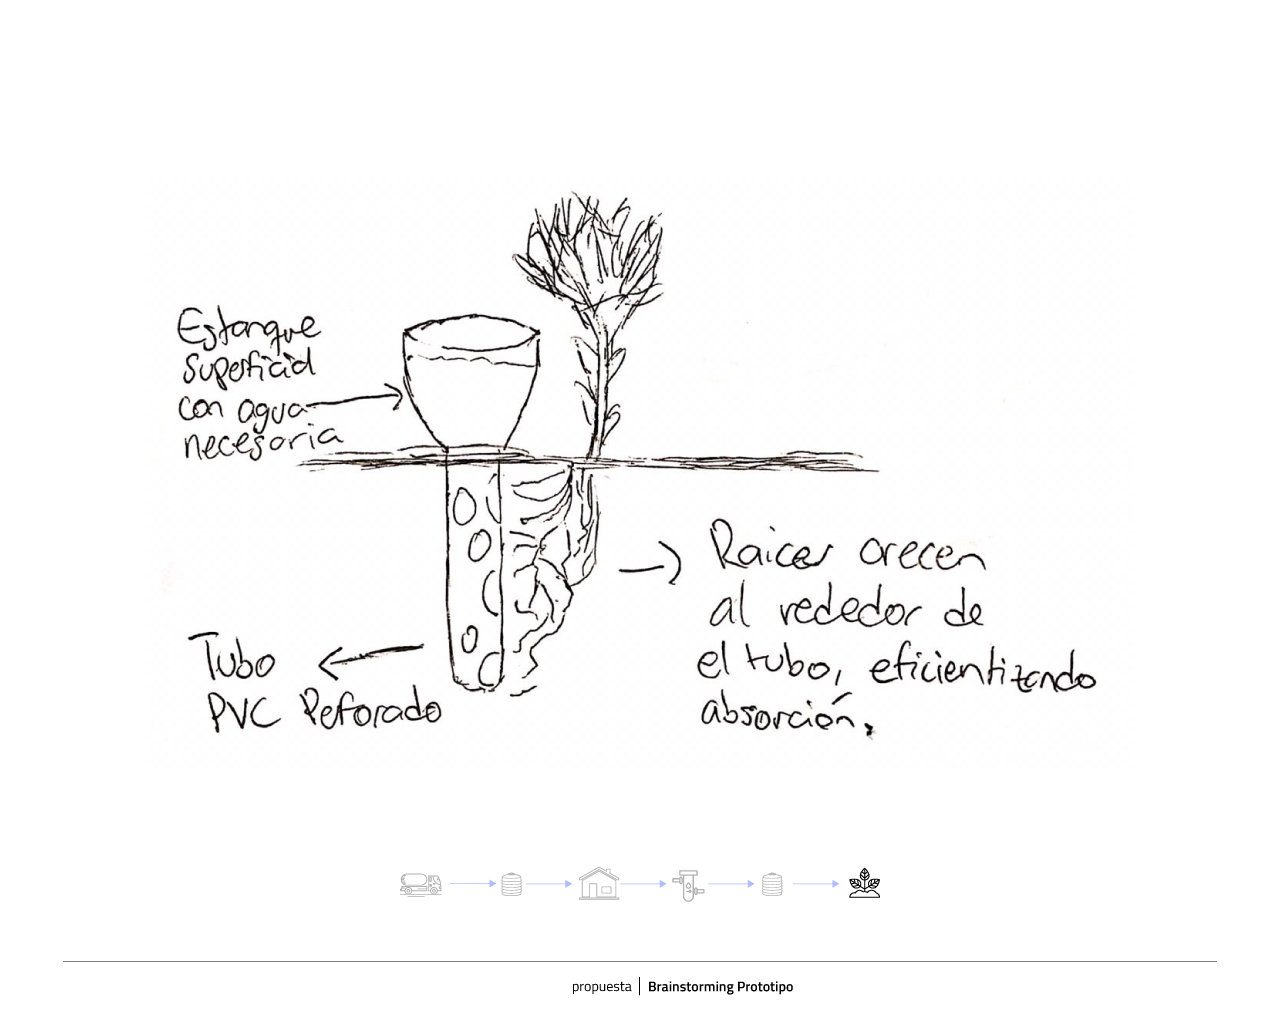 Estanque
superficial
con agua
necesaria
Raices crecen
al rededor de
el tubo, eficientizando
absorción.
Tubo
PVC Peforado
propuesta | Brainstorming Prototipo